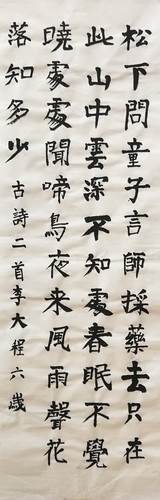 松下問童子言師採藥去只在
此山中雲深不知處春眠不覺
曉處處聞啼鳥夜来風雨聲花
落知多少 古詩二首李大程六歲